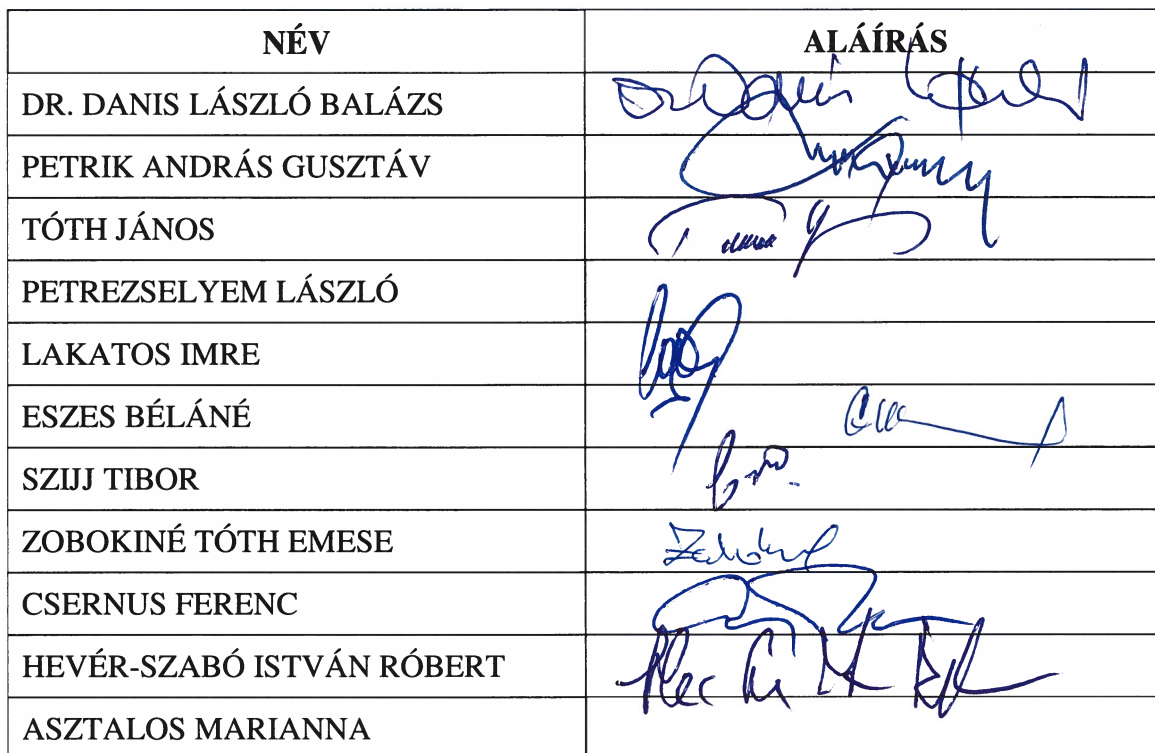 NÉV ALÁÍRÁS
DR. DANIS LÁSZLÓ BALÁZS Dr Danis László
PETRIK ANDRÁS GUSZTÁV
TÓTH JÁNOS
PETREZSELYEM LÁSZLÓ
LAKATOS IMRE
ESZES BÉLÁNÉ
SZIJJ TIBOR
ZOBOKINÉ TÓTH EMESE
CSERNUS FERENC
HEVÉR-SZABÓ ISTVÁN RÓBERT
ASZTALOS MARIANNA